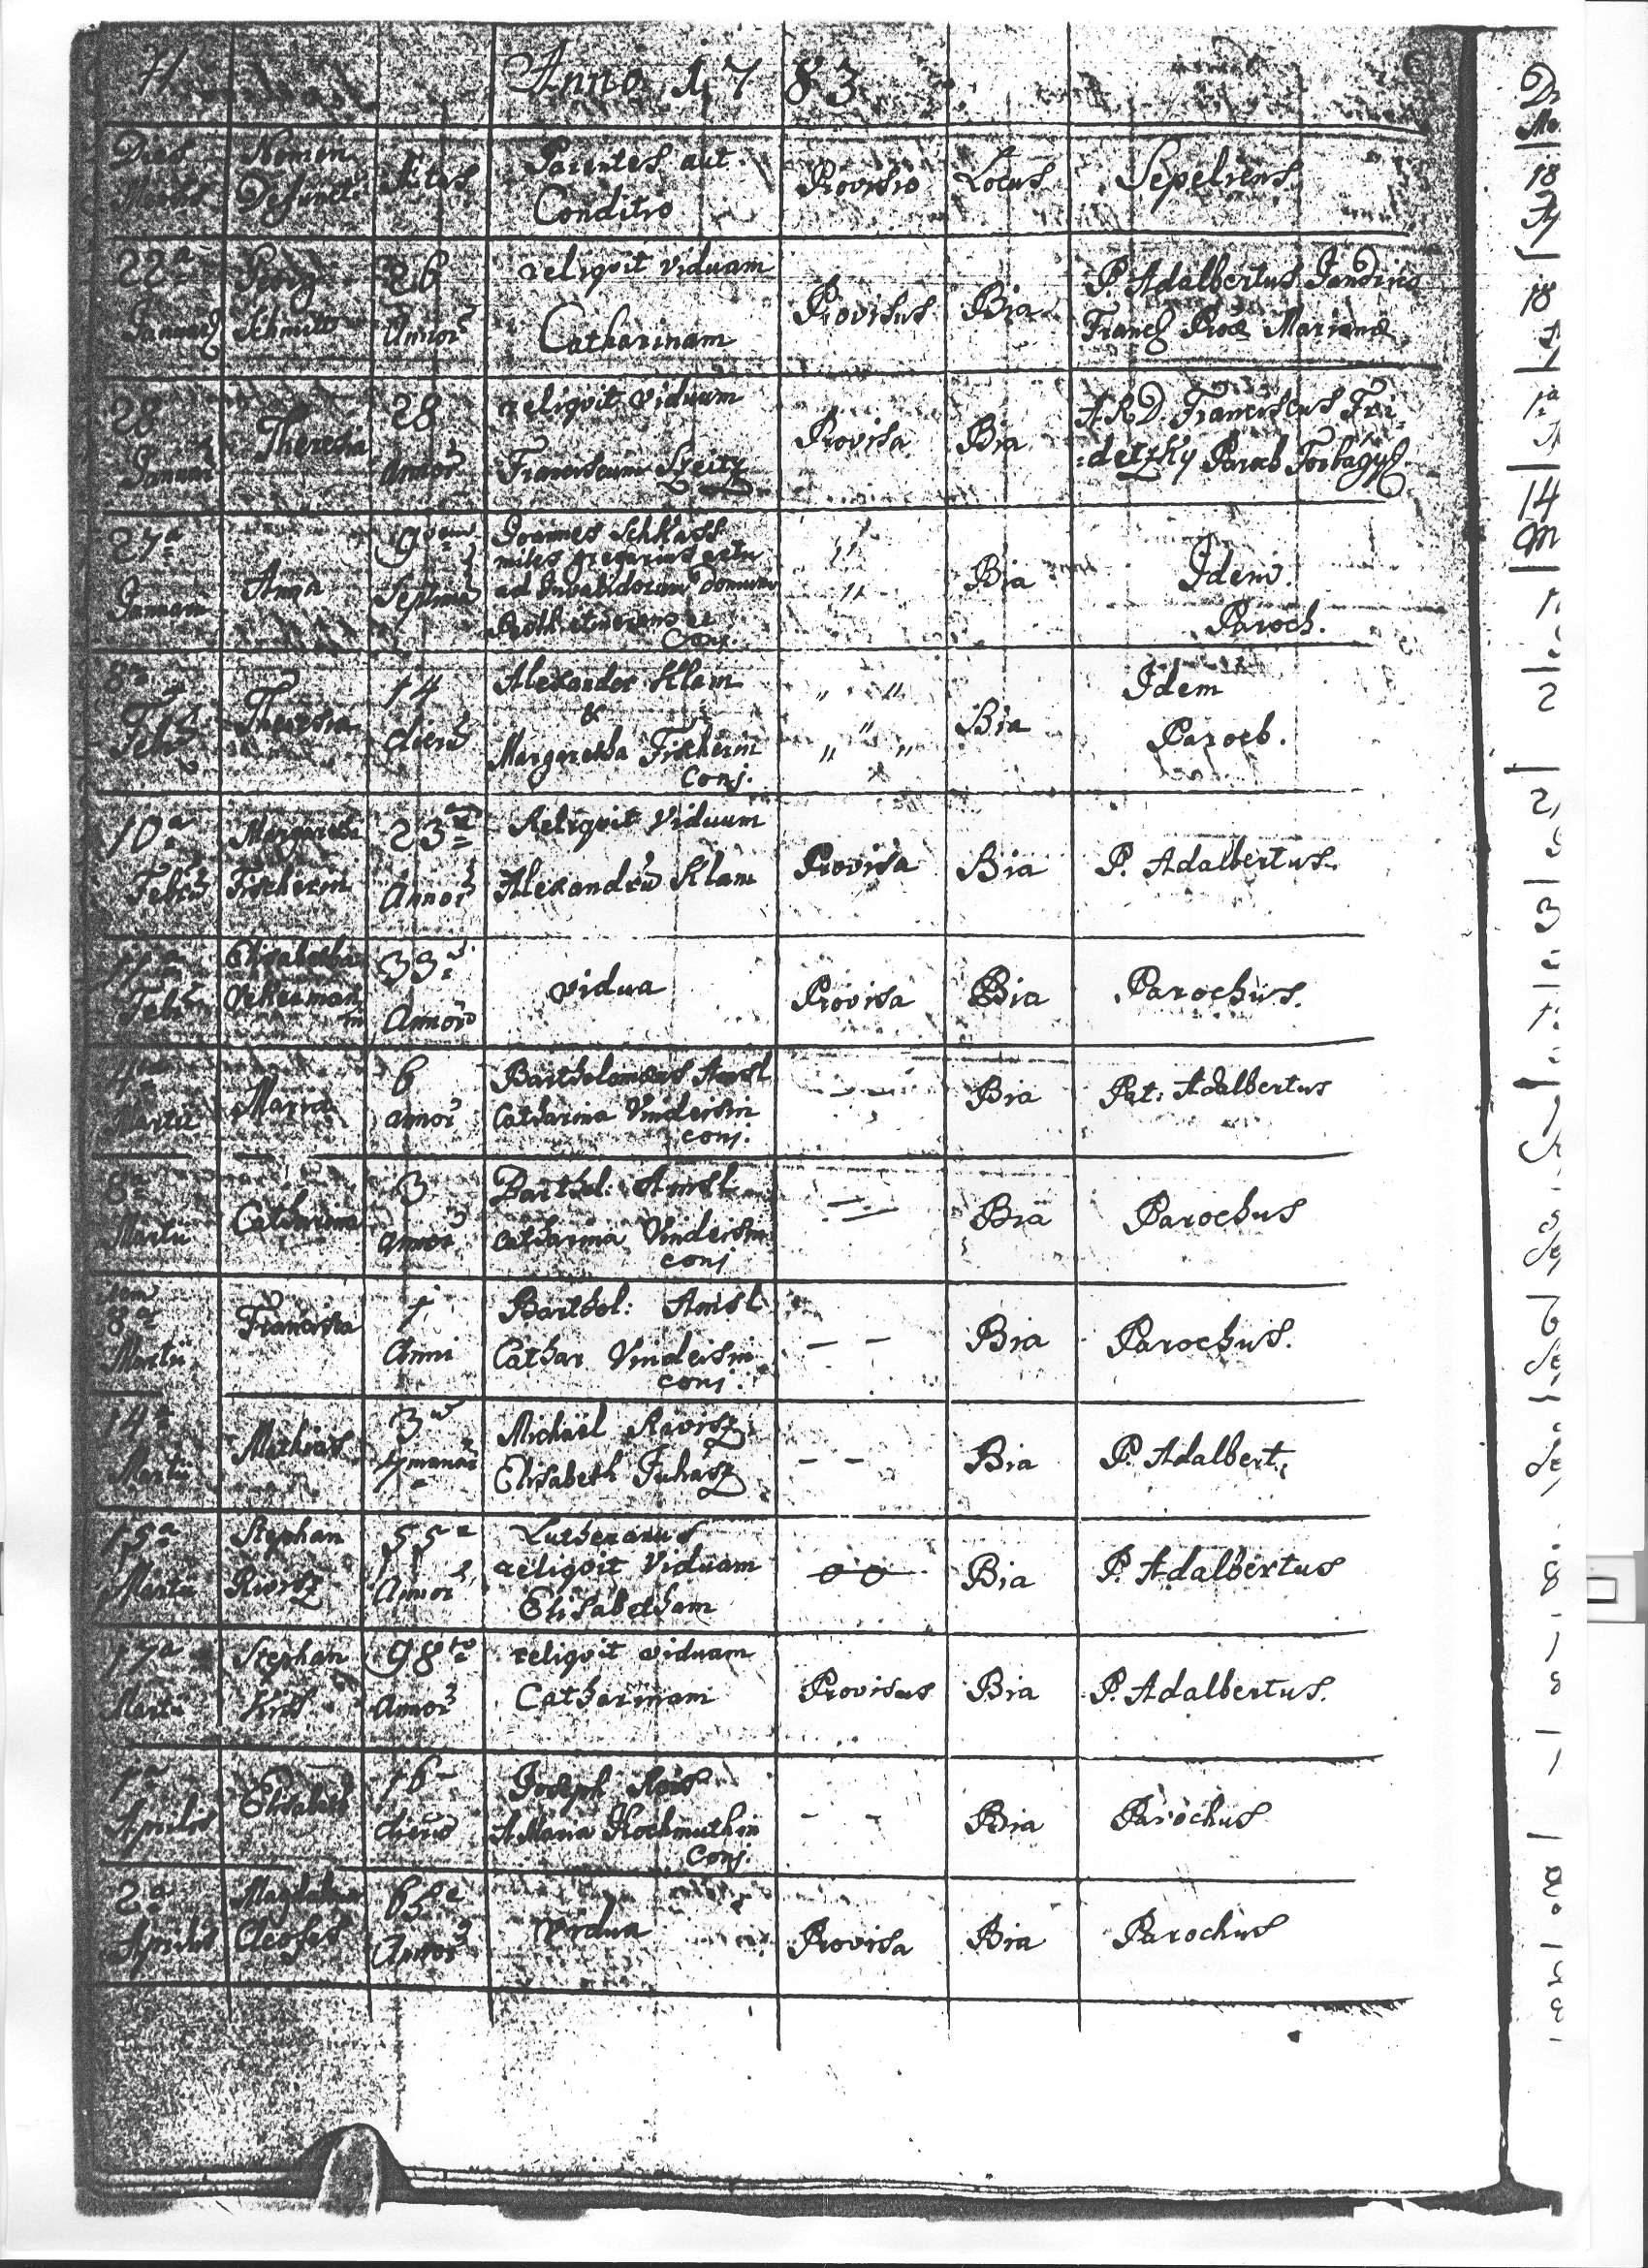 71
Anno 1783
Dies Mortis
Nomen Defuncti
Ætas
Parentes aut Conditio
Provisio
Locus
Sepeliens
22a Januarij
Georg Schmitt
26 Annor
reliqvit viduam
Catharinam
Provisus
Bia
P. Adalbertus
Franc Prov Marianæ
28 Januar
Theresia
28 Annor
reliqvit viduum
Franciscum Szeitz
Provisa
Bia
A.R.D. Franciscus Fri-
:detzky Paroch Torbágy
27a
Anna
9
Joannes
miles gregarius
ad Invalidorum Domum
Conj.
" "
Bia
Idem
Paroch.
8a Febr
Theresia
14 dierū
Alexander Klam
&
Margaretha Fischerin
Conj.
" "
" " "
Bia
Idem
Paroch.
10a Febr
Margaretha Fischerin
23 Annor
Reliqvit Viduum
Alexandrū Klam
Provisa
Bia
P. Adalbertus
11a Febr
Elisabetha Vekerman
in
33 Annor
vidua
Provisa
Bia
Parochus.
4ta Martii
Maria
6 annor
Bartholomæus Amsl
Catharina Vindeisin
conj.
- -
Bia
Pat: Adalbertus
8a Martii
Catharina
3 annor
Barthol: Amsl
Catharina Vindeisin
conj
Bia
Parochus
8a Martii
Francisca
1 Anni
Barthol: Amsl
Cathar Vindeisin
conj.
- -
Bia
Parochus.
14a Martii
Mathias
3
Michaël Ravisz
Elisabeth Juhász
- -
Bia
P. Adalbert.
15a Martii
Stephan
55 Annor
Lutheranus
reliqvit Viduam
Elisabetham
Bia
P. Adalbertus
17a Martii
Stephan Kiss
98 Annor
reliqvit viduam
Catharinam
Provisus
Bia
P. Adalbertus.
1a Aprilis
Elisabeth
16 dierū
Joseph
A. Maria Hochmuthin
Conj.
- -
Bia
Parochus
2a Aprilis
Magdalena
65 Annor
vidua
Provisa
Bia
Parochus